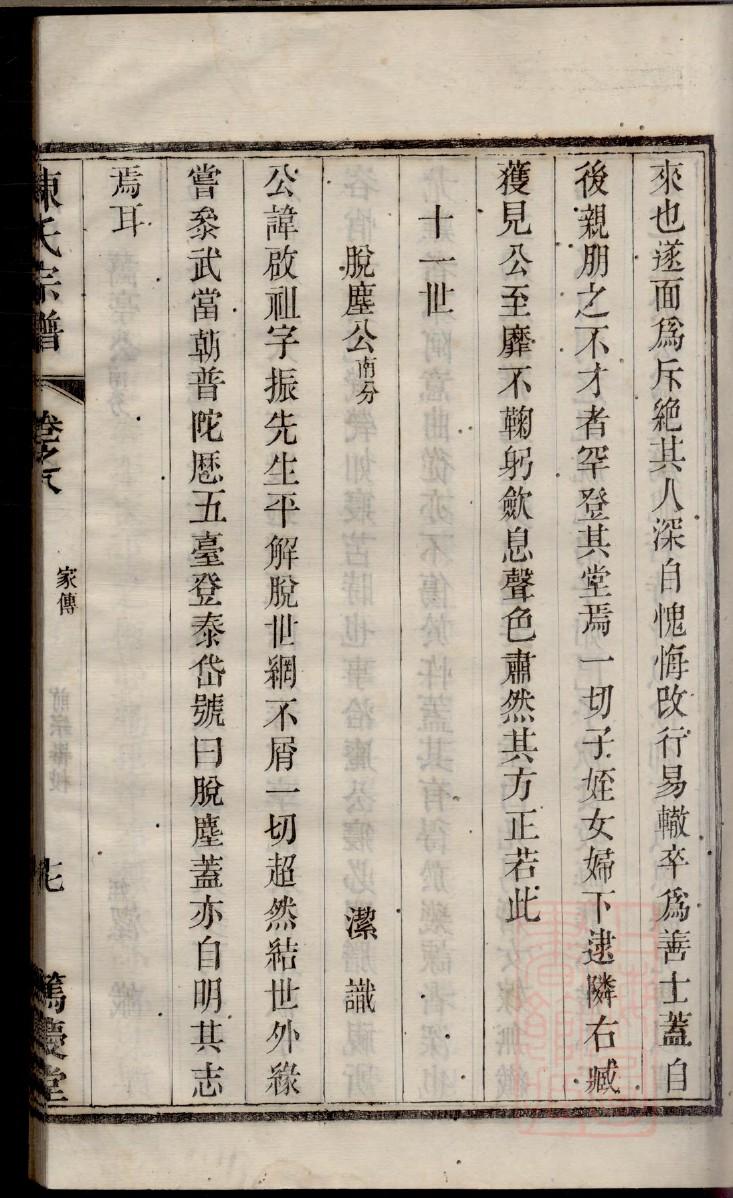 來也遂面爲斥絶其人深自愧悔改行易轍卒爲善士蓋自
後親朋之不才者罕登其堂焉一切子姪女婦下逮隣右臧
獲見公至靡不鞠躬歛息聲色肅然其方正若此
十一世
脫塵公南分 潔識
公諱啟祖字振先生平解脫世網不屑一切超然結世外緣
嘗叅武當朝普陀歷五臺登泰岱號曰脫塵蓋亦自明其志
焉耳
陳氏宗譜 卷之八 家傳 篤慶堂